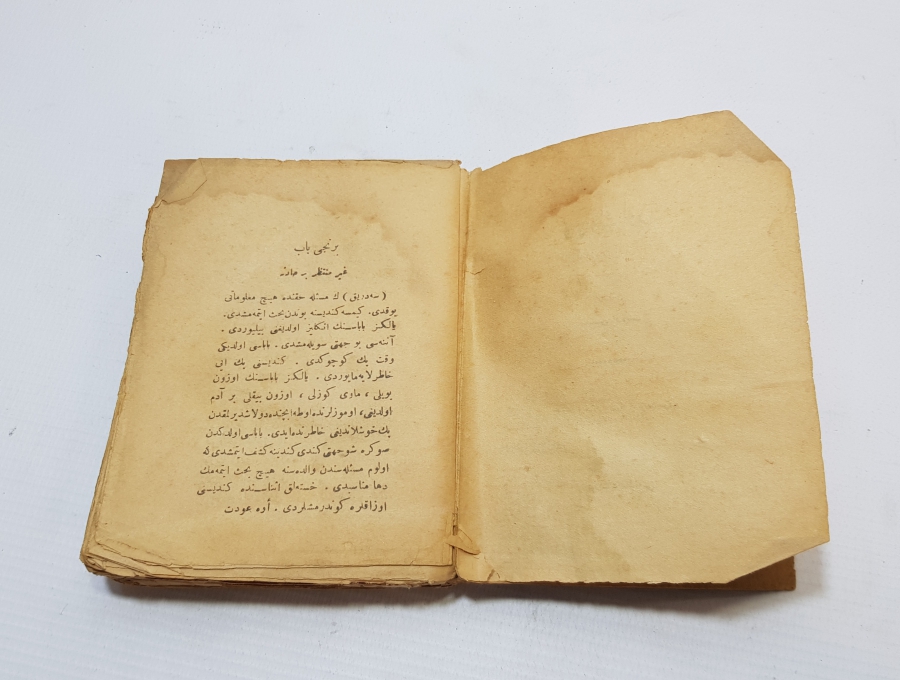 برنجی باب
غیر منتظر بر حادثه
(سه‌دریق) ك مسئله حقنده هیچ معلوماتی
یوقدی. كیمسه كندیسنه بوندن بحث ایتمه‌مشدی.
یالكز باباسنك انكلیز اولدیغنی بیلیوردی .
آننه‌سی بو جهتی سویله‌مشدی . باباسی اولدیكی
وقت پك كوچوكدی . كندیسنی پك ایی
خاطرلایه‌مایوردی . یالكز باباسنك اوزون
بویلی ، ماوی كوزلی ، اوزون بیقلی بر آدم
اولدیغنی ، اوموزلرنده اوطه ایچنده دولاشدیرلقدن
پك خوشلاندیغنی خاطرنده‌ایدی. باباسی اولدكدن
صوكره شو جهتی كندی كندینه كشف ایتمشدی كه
اولوم مسئله‌سندن والده‌سنه هیچ بحث ایتمه‌مك
دها مناسبدی . خسته‌لق اثناسنده كندیسنی
اوزاقلره كوندرمشلردی . أوه عودت